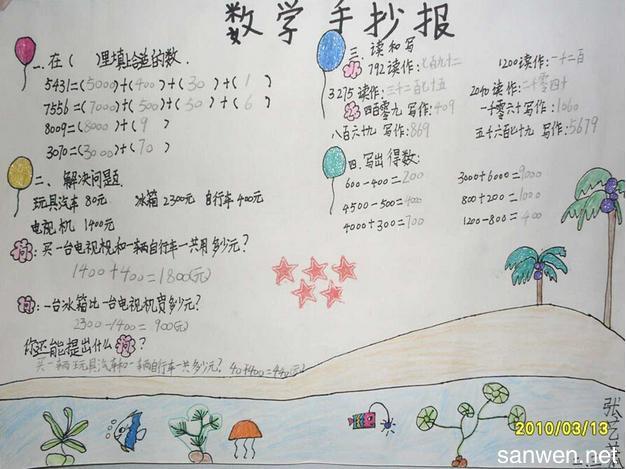 数学手抄报
一.在（ ）里填上合适的数.
5431=(5000)+(400)+(30)+(1)
7556=(7000)+(500)+(50)+(6)
8009=(8000)+(9)
3070=(3000)+(70)
二、解决问题.
玩具汽车 80元 冰箱 2300元 自行车 400元
电视机 1400元
问:买一台电视机和一辆自行车一共用多少元?
1400+400=1800(元)
问:一台冰箱比一台电视机贵多少元?
2300-1400=900(元)
你还能提出什么问?
买一辆玩具汽车和一辆自行车一共多少元?
三 读和写
792读作:七百九十二 1200读作:一千二百
3275读作:三千二百七十五 2040读作:二千零四十
四百零九 写作:409 一千零六十 写作:1060
八百六十九 写作:869 五千六百七十九 写作:5679
四.写出得数:
600-400=200 3000+6000=9000
4500-500=4000 800+200=1000
4000+300= 1200-800=400
2010/03/13
sanwen.net